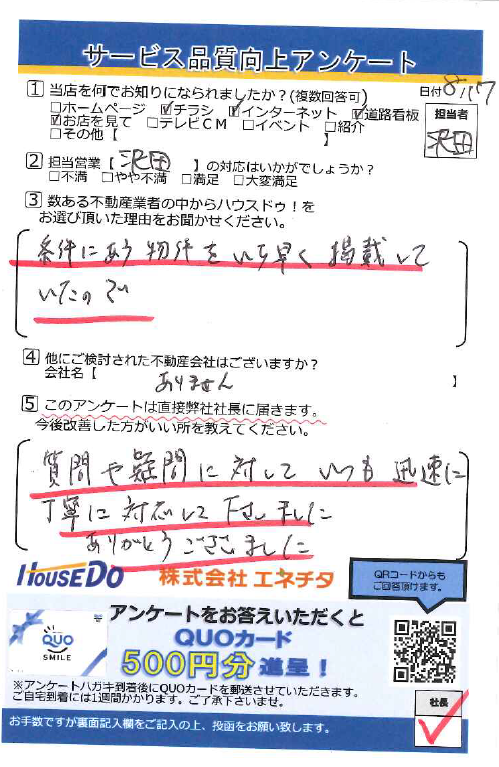 サービス品質向上アンケート
1 当店を何でお知りになられましたか?(複数回答可) 日付 8/17
□ホームページ ☑チラシ ☑インターネット ☑道路看板
☑お店を見て □テレビCM □イベント □紹介
□その他【 】
担当者
沢田
2 担当営業【 沢田 】の対応はいかがでしょうか?
□不満 □やや不満 □満足 □大変満足
3 数ある不動産業者の中からハウスドゥ!を
お選び頂いた理由をお聞かせください。
条件にあう物件をいち早く掲載して
いたので
4 他にご検討された不動産会社はございますか?
会社名【 ありません 】
5 このアンケートは直接弊社社長に届きます。
今後改善した方がいい所を教えてください。
質問や疑問に対していつも迅速に
丁寧に対応して下さいました
ありがとうございました
HOUSEDO 株式会社 エネチタ
QRコードからも
ご回答頂けます。
QUO
SMILE
アンケートをお答えいただくと
QUOカード
500円分 進呈!
※アンケートハガキ到着後にQUOカードを郵送させていただきます。
ご自宅到着には1週間かかります。ご了承下さいませ。
お手数ですが裏面記入欄をご記入の上、投函をお願い致します。
社長